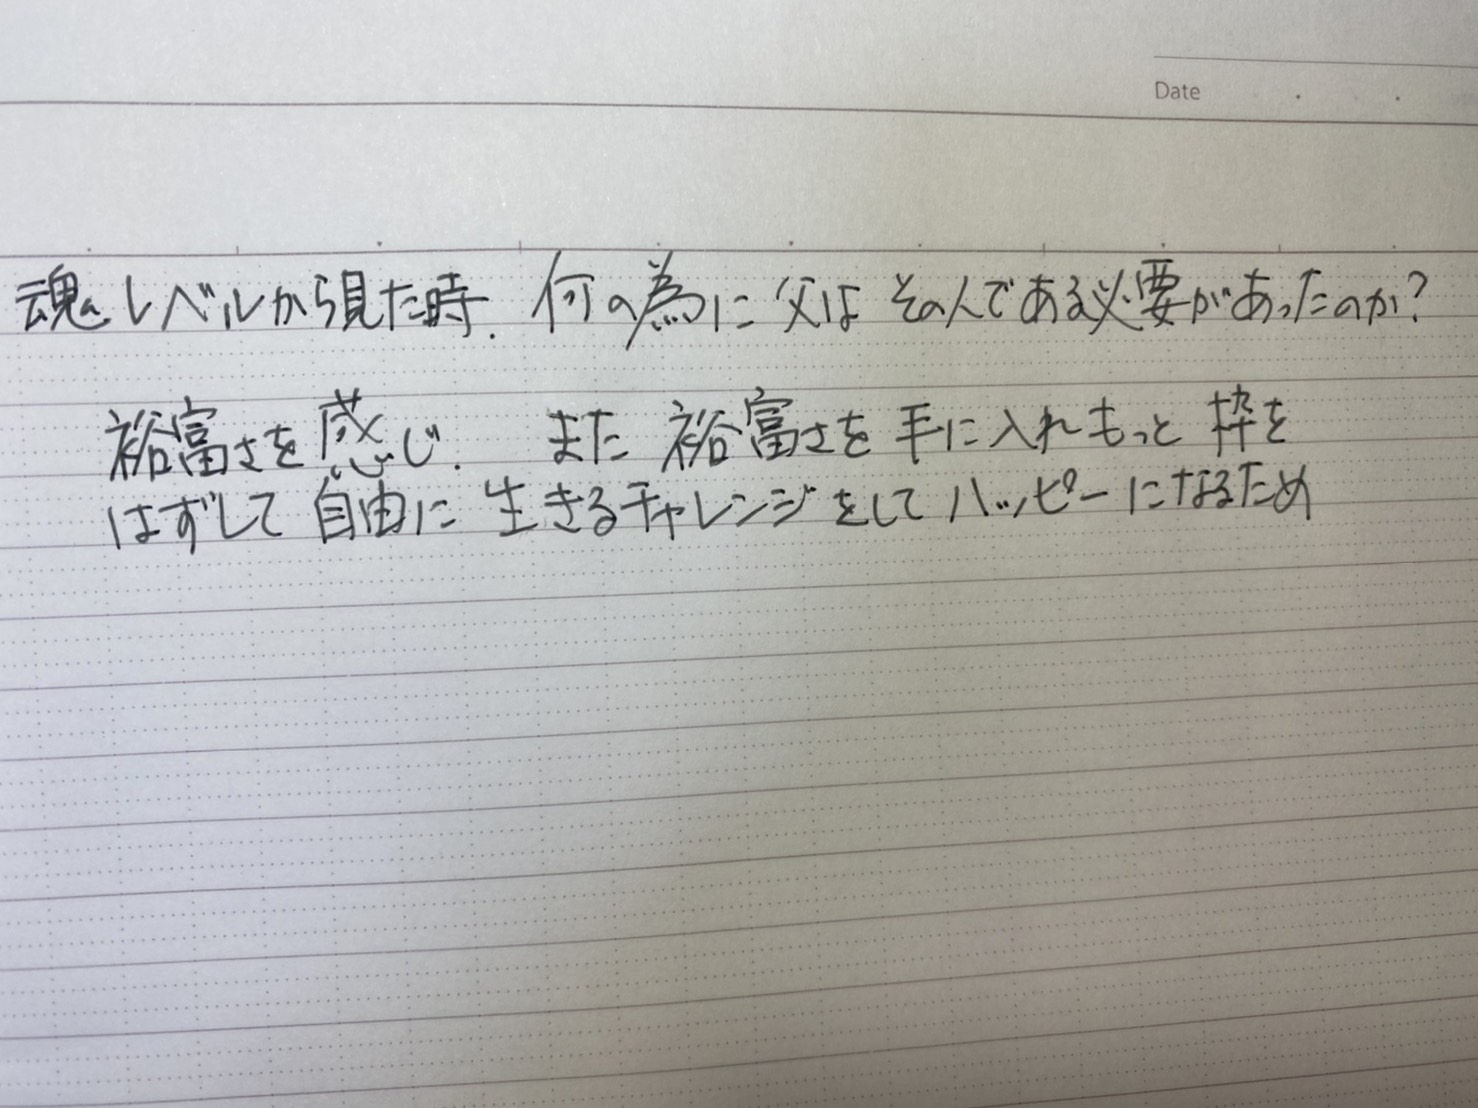 Date
魂レベルから見た時、何の為に父はその人である必要があったのか?
裕富さを感じ、また裕富さを手に入れもっと枠を
はずして自由に生きるチャレンジをしてハッピーになるため